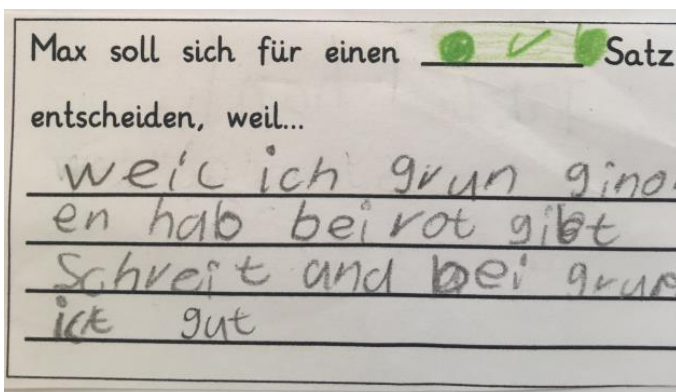 Max soll sich für einen Satz
entscheiden, weil...
weil ich grun gino
en hab bei rot gibt
Schreit und bei grun
ist gut